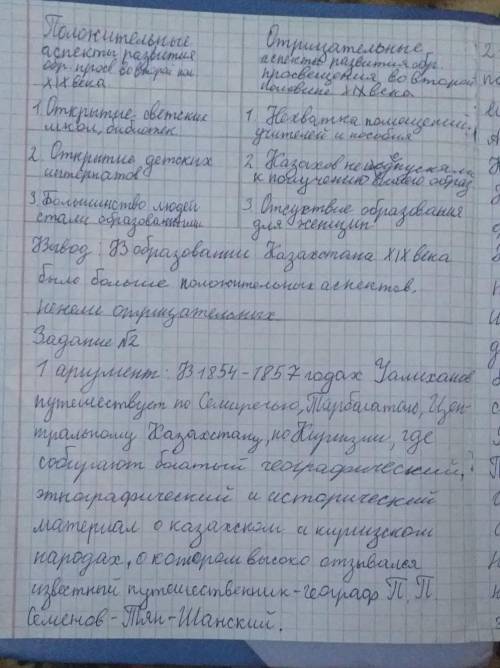 Положительные
аспекты развития
обр. просв. во втор. пол
XIX века
Отрицательные
аспекты развития обр.
просвещения во второй
половине XIX века
1. Открытие светских
школ, библиотек
1. Нехватка помощений,
учителей и пособия
2. Открытие детских
интернатов
2. Казахов не допускали
к получению образ
3. Большинство людей
стали образованными
3. Отсуктвие образования
для женщин
Вывод: В образовании Казахстана XIX века
было больше положительных аспектов,
нежели отрицательных
Задание №2
1 аргумент: В 1854-1857 годах Уалиханов
путешествует по Семиречью, Тарбагатаю, Цен-
тральному Казахстану, по Киргизии, где
собирают богатый географический,
этнографический и исторический
материал о казахском и киргизском
народах, о котором высоко отзывался
известный путешественник-географ П. П.
Семенов-Тян-Шанский.
2